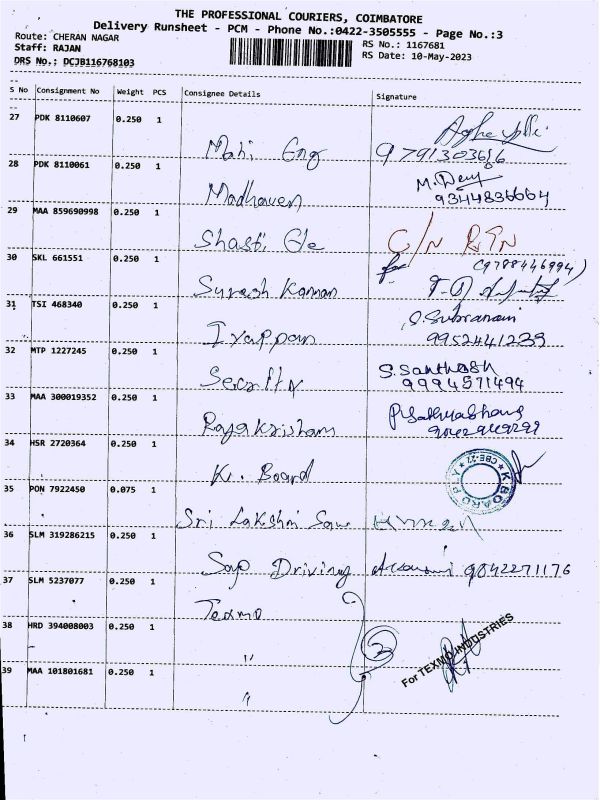 THE PROFESSIONAL COURIERS, COIMBATORE
Delivery Runsheet - PCM - Phone No.:0422-3505555 - Page No.:3
Route: CHERAN NAGAR
RS No.: 1167681
Staff: RAJAN
RS Date: 10-May-2023
DRS No.: DCJB116768103
S No Consignment No Weight PCS Consignee Details Signature
27 PDK 8110607 0.250 1
Mahi Eng 9791303616
28 PDK 8110061 0.250 1 M. Devy
Madhaven 9344836664
29 MAA 859690998 0.250 1
Shasti Gle C/N RTN
30 SKL 661551 0.250 1 for (9788446994)
Suresh Kannan
31 TSI 468340 0.250 1 S. Subramani
Iyappan 9952441239
32 MTP 1227245 0.250 1 S. Santhosh
Security 9994571494
33 MAA 300019352 0.250 1
Rajakrisham
34 HSR 2720364 0.250 1
K. Board K BOARD
35 PON 7922450 0.075 1
Sri Lakshmi Saw
36 SLM 319286215 0.250 1
Sago Driving 9842271176
37 SLM 5237077 0.250 1
Texmo
38 HRD 394008003 0.250 1
" 3 For TEXMO INDUSTRIES
39 MAA 101801681 0.250 1
"